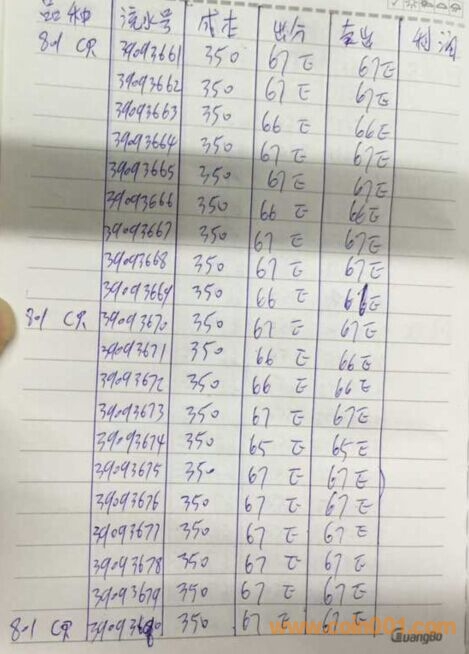 品种 流水号 成本 出分 支出 利润
801 CR 39093661 350 67 王 67王
39093662 350 67 王 67王
39093663 350 66 王 66王
39093664 350 67 王 67王
39093665 350 67 王 67王
39093666 350 66 王 66王
39093667 350 67 王 67王
39093668 350 67 王 67王
39093669 350 66 王 66王
801 CR 39093670 350 67 王 67王
39093671 350 66 王 66王
39093672 350 66 王 66王
39093673 350 67 王 67王
39093674 350 65 王 65王
39093675 350 67 王 67王
39093676 350 67 王 67王
39093677 350 67 王 67王
39093678 350 67 王 67王
39093679 350 67 王 67王
801 CR 39093680 350 67 王 67王
GuangBo